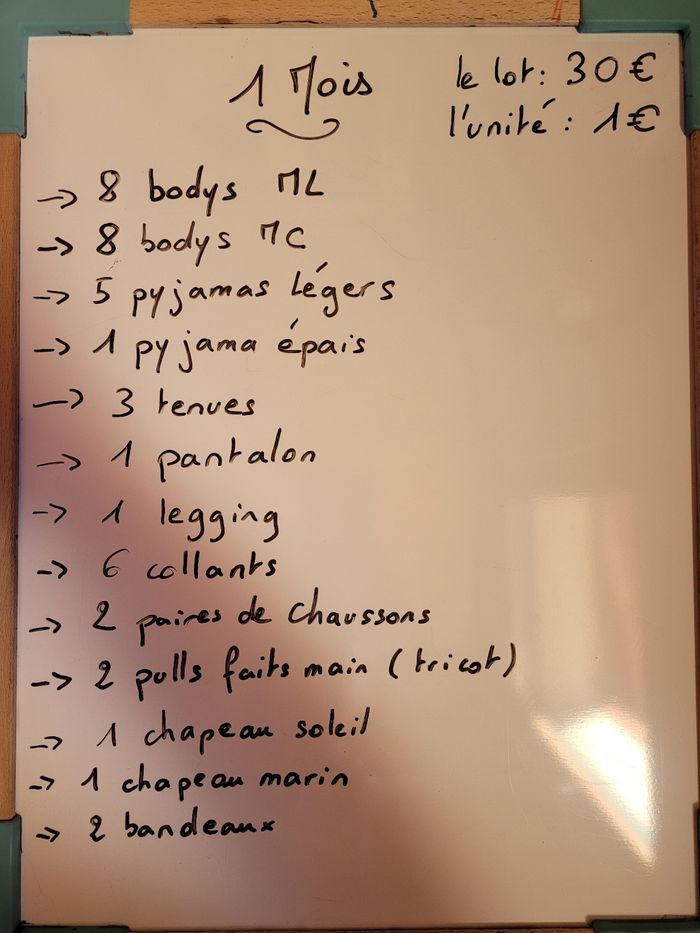 1 Mois
le lot : 30 €
l'unité : 1 €
-> 8 bodys ML
-> 8 bodys MC
-> 5 pyjamas légers
-> 1 pyjama épais
-> 3 tenues
-> 1 pantalon
-> 1 legging
-> 6 collants
-> 2 paires de chaussons
-> 2 pulls faits main (tricot)
-> 1 chapeau soleil
-> 1 chapeau marin
-> 2 bandeaux